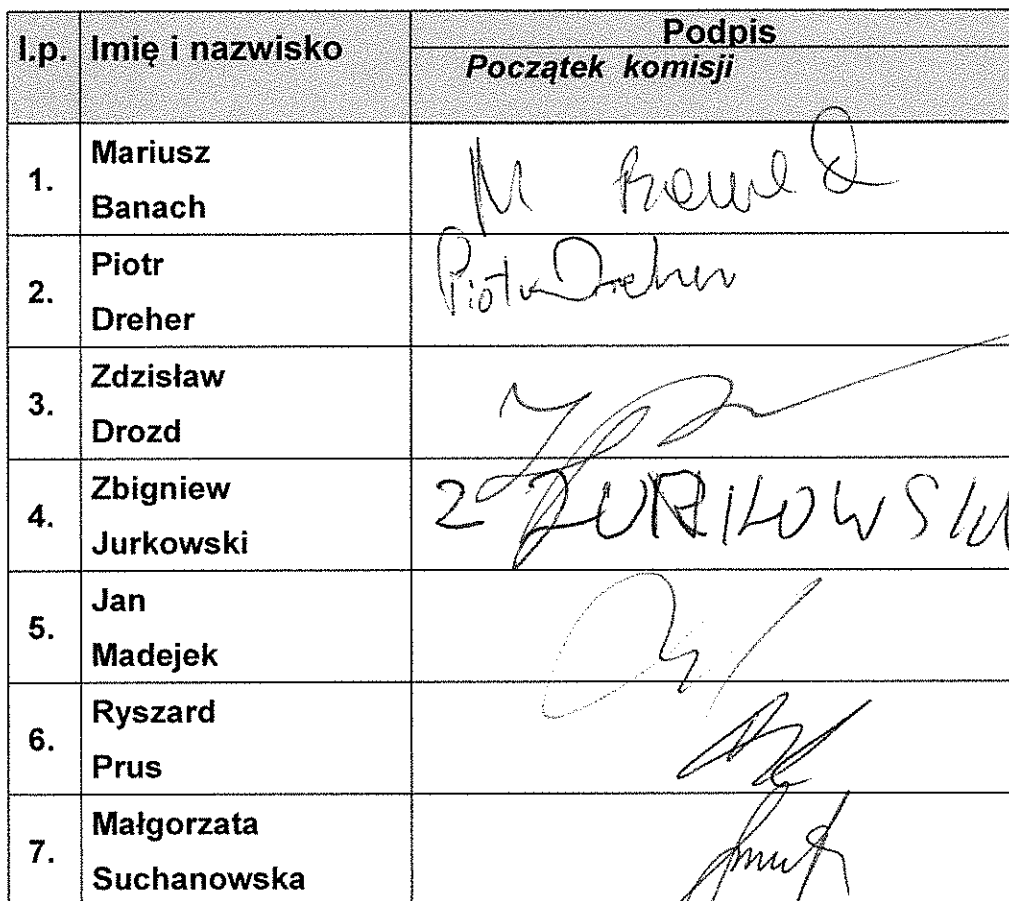 l.p. Imię i nazwisko Podpis
Początek komisji
1. Mariusz
Banach
M Banach
2. Piotr
Dreher
Piotr Dreher
3. Zdzisław
Drozd
4. Zbigniew
Jurkowski
Z JURKOWSKI
5. Jan
Madejek
6. Ryszard
Prus
7. Małgorzata
Suchanowska